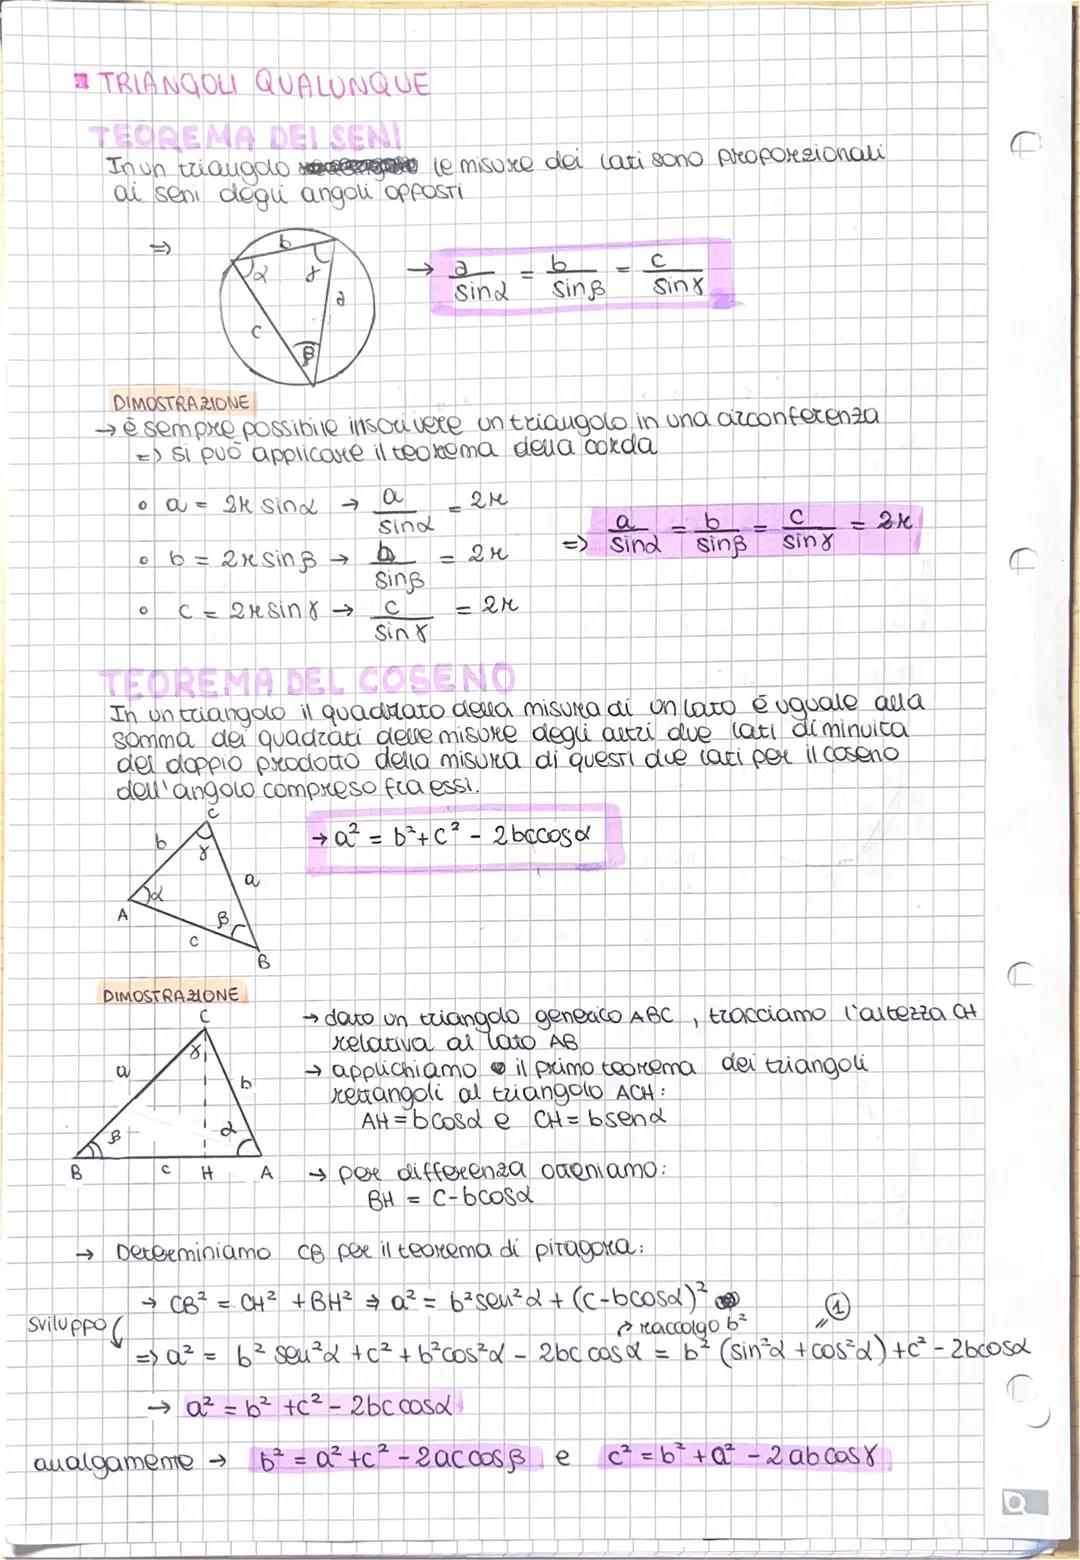 TRIANGOLI QUALUNQUE
TEOREMA DEI SENI
In un triangolo le misure dei lati sono proporzionali
ai seni degli angoli opposti
⇒
b
α γ
a
c
β
→ a/sinα = b/sinβ = c/sinγ
DIMOSTRAZIONE
→ è sempre possibile inscrivere un triangolo in una circonferenza
⇒ si può applicare il teorema della corda
• a = 2r sinα → a/sinα = 2r
• b = 2r sinβ → b/sinβ = 2r
• c = 2r sinγ → c/sinγ = 2r
⇒ a/sinα = b/sinβ = c/sinγ = 2r
TEOREMA DEL COSENO
In un triangolo il quadrato della misura di un lato è uguale alla
somma dei quadrati delle misure degli altri due lati diminuita
del doppio prodotto della misura di questi due lati per il coseno
dell'angolo compreso fra essi.
→ a² = b²+c² - 2bccosα
C
b
γ
a
α
A
β
c
B
DIMOSTRAZIONE
C
γ
a
b
β
α
B c H A
→ dato un triangolo generico ABC, tracciamo l'altezza CH
relativa al lato AB
→ applichiamo il primo teorema dei triangoli
rettangoli al triangolo ACH:
AH = bcosα e CH = bsenα
→ per differenza otteniamo:
BH = c-bcosα
→ Determiniamo CB per il teorema di pitagora:
→ CB² = CH² + BH² ⇒ a² = b²sen²α + (c-bcosα)²
sviluppo
→ raccolgo b²
1
⇒ a² = b² sen²α + c² + b²cos²α - 2bc cosα = b² (sin²α + cos²α) + c² - 2bcosα
→ a² = b² + c² - 2bc cosα
analgamente → b² = a² + c² - 2ac cosβ e c² = b² + a² - 2ab cosγ